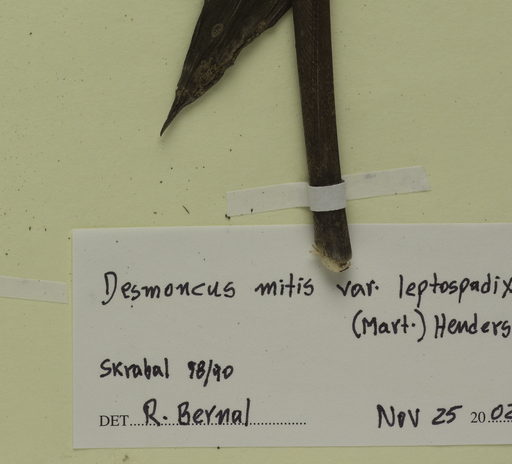 Desmoncus mitis var. leptospadix
(Mart.) Henders
Skrabal 98/90
DET. R. Bernal Nov 25 2002